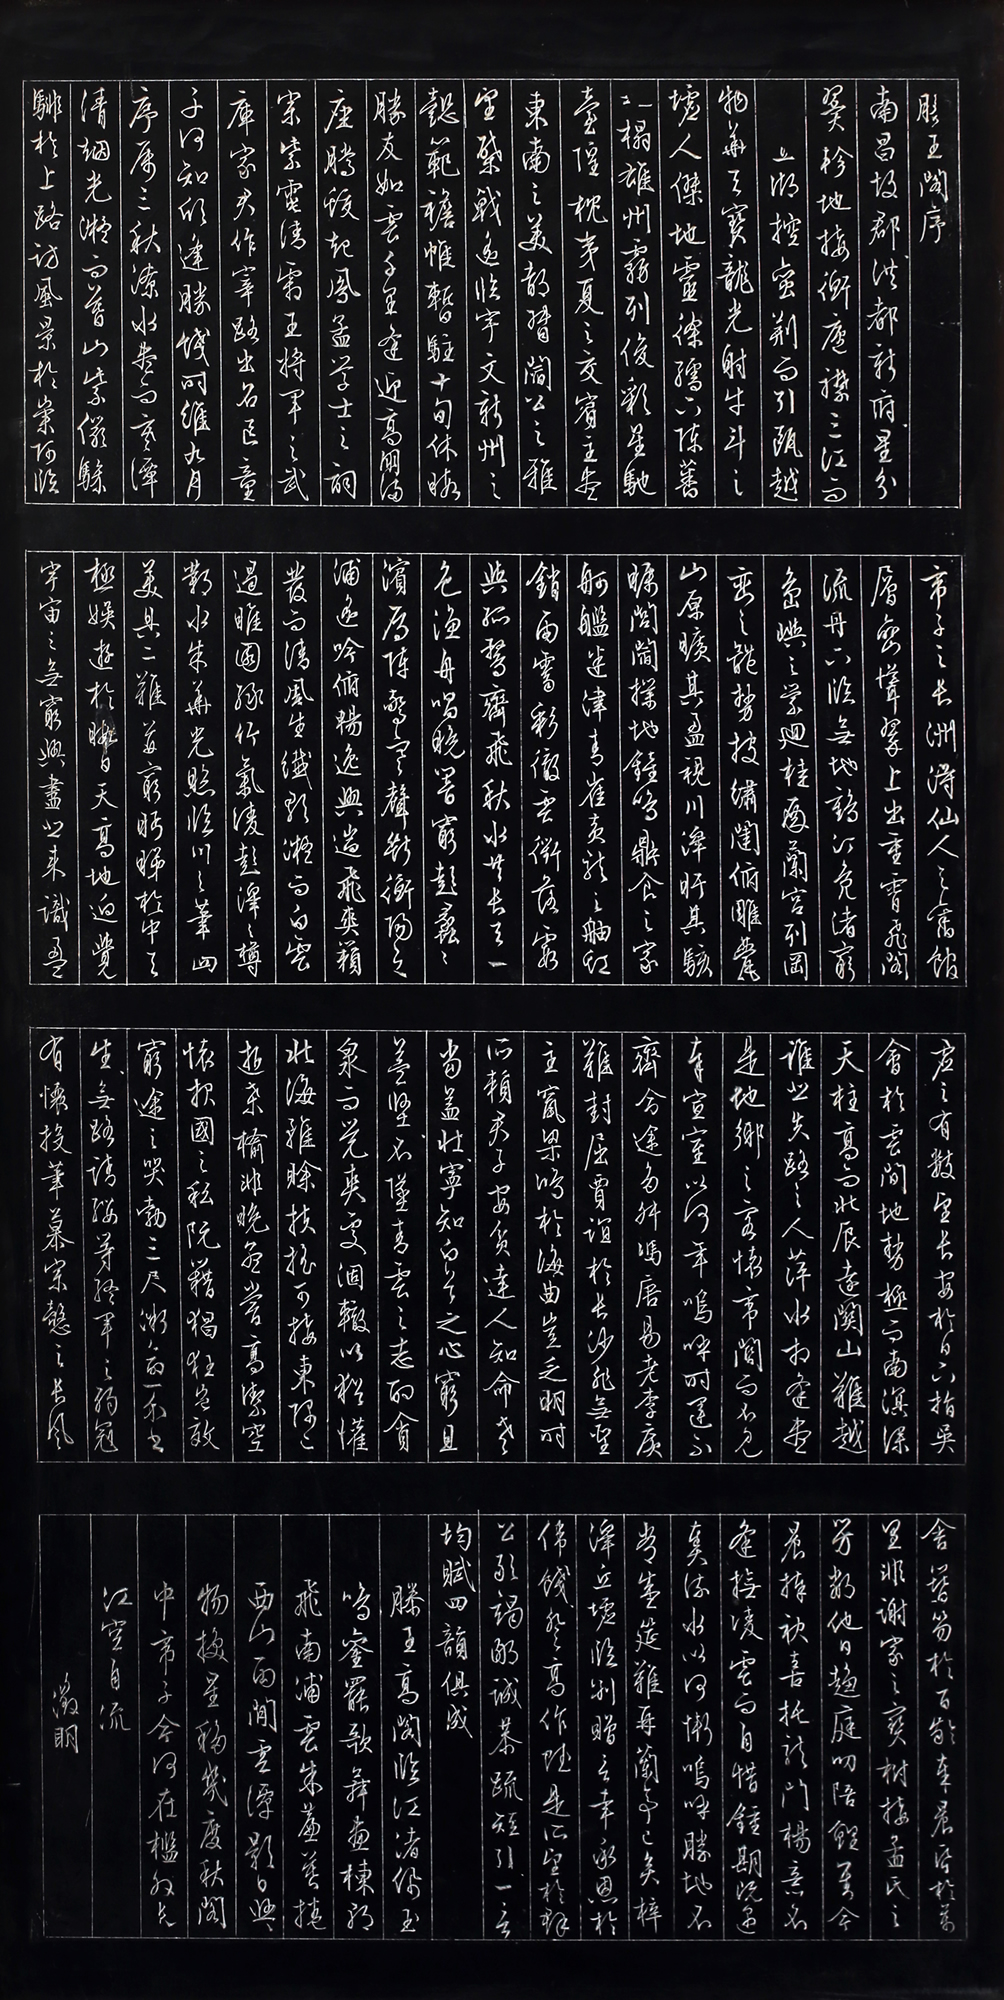 滕王閣序
南昌故郡洪都新府星分
翼軫地接衡廬襟三江而
五湖控蠻荊而引甌越
物華天寶龍光射牛斗之
墟人傑地靈徐孺下陳蕃
之榻雄州霧列俊彩星馳
臺隍枕夷夏之交賓主盡
東南之美都督閻公之雅
望棨戟遙臨宇文新州之
懿範襜帷暫駐十旬休暇
勝友如雲千里逢迎高朋滿
座騰蛟起鳳孟學士之詞
宗紫電清霜王將軍之武
庫家君作宰路出名區童
子何知躬逢勝餞時維九月
序屬三秋潦水盡而寒潭
清烟光凝而暮山紫儼驂
騑於上路訪風景於崇阿臨
帝子之長洲得仙人之舊館
層巒聳翠上出重霄飛閣
流丹下臨無地鶴汀鳧渚窮
島嶼之縈迴桂殿蘭宮列岡
巒之體勢披繡闥俯雕甍
山原曠其盈視川澤盱其駭
矚閭閻撲地鐘鳴鼎食之家
舸艦迷津青雀黃龍之舳虹
銷雨霽彩徹雲衢落霞
與孤鶩齊飛秋水共長天一
色漁舟唱晚響窮彭蠡之
濱雁陣驚寒聲斷衡陽之
浦遙吟俯暢逸興遄飛爽籟
發而清風生纖歌凝而白雲
遏睢園綠竹氣凌彭澤之樽
鄴水朱華光照臨川之筆四
美具二難並窮眄睇於中天
極娛遊於暇日天高地迥覺
宇宙之無窮興盡悲來識盈
虛之有數望長安於日下指吳
會於雲間地勢極而南溟深
天柱高而北辰遠關山難越
誰悲失路之人萍水相逢盡
是他鄉之客懷帝閽而不見
奉宣室以何年嗚呼時運不
齊命途多舛馮唐易老李廣
難封屈賈誼於長沙非無聖
主竄梁鴻於海曲豈乏明時
所賴君子安貧達人知命老
當益壯寧知白首之心窮且
益堅不墜青雲之志酌貪
泉而覺爽處涸轍以猶懽
北海雖賒扶搖可接東隅已
逝桑榆非晚孟嘗高潔空
懷報國之私阮籍猖狂豈效
窮途之哭勃三尺微命一介書
生無路請纓等終軍之弱冠
有懷投筆慕宗愨之長風
舍簪笏於百齡奉晨昏於萬
里非謝家之寶樹接孟氏之
芳鄰他日趨庭叨陪鯉對今
晨捧袂喜托龍門楊意不
逢撫凌雲而自惜鍾期既遇
奏流水以何慚嗚呼勝地不
常盛筵難再蘭亭已矣梓
澤丘墟臨別贈言幸承恩於
偉餞登高作賦是所望於群
公敢竭鄙誠恭疏短引一言
均賦四韻俱成
滕王高閣臨江渚佩玉
鳴鑾罷歌舞畫棟朝
飛南浦雲朱簾暮捲
西山雨閒雲潭影日悠
物換星移幾度秋閣
中帝子今何在檻外長
江空自流
徵明